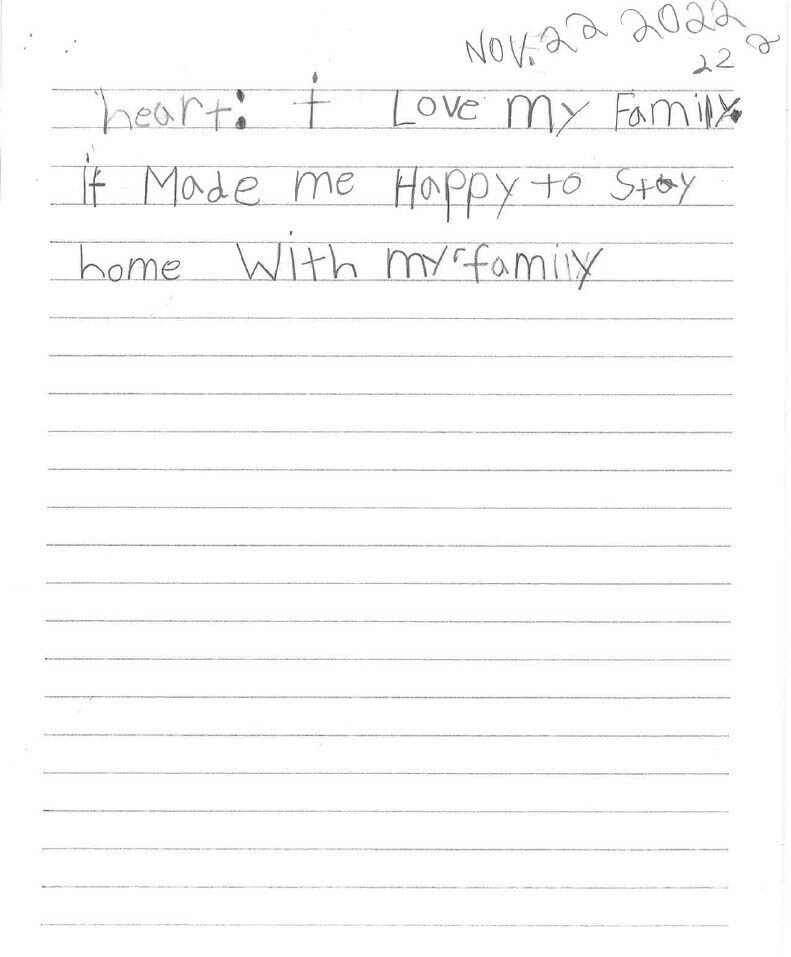 Nov. 22 2022
22 2
heart: I Love my Family.
it Made me Happy to Stay
home With my family